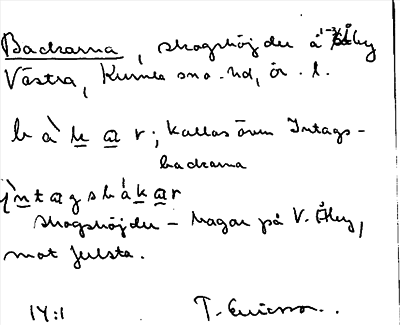 Backarna, skogshöjder å 1-3/4 Åby
Västra, Kumla sn o. hd, ör. l.
bàkar; kallas även Intags-
backarna
ìntagsbákar
skogshöjder – hagar på V. Åby,
mot Julsta.
14:1 T. Ericsson.